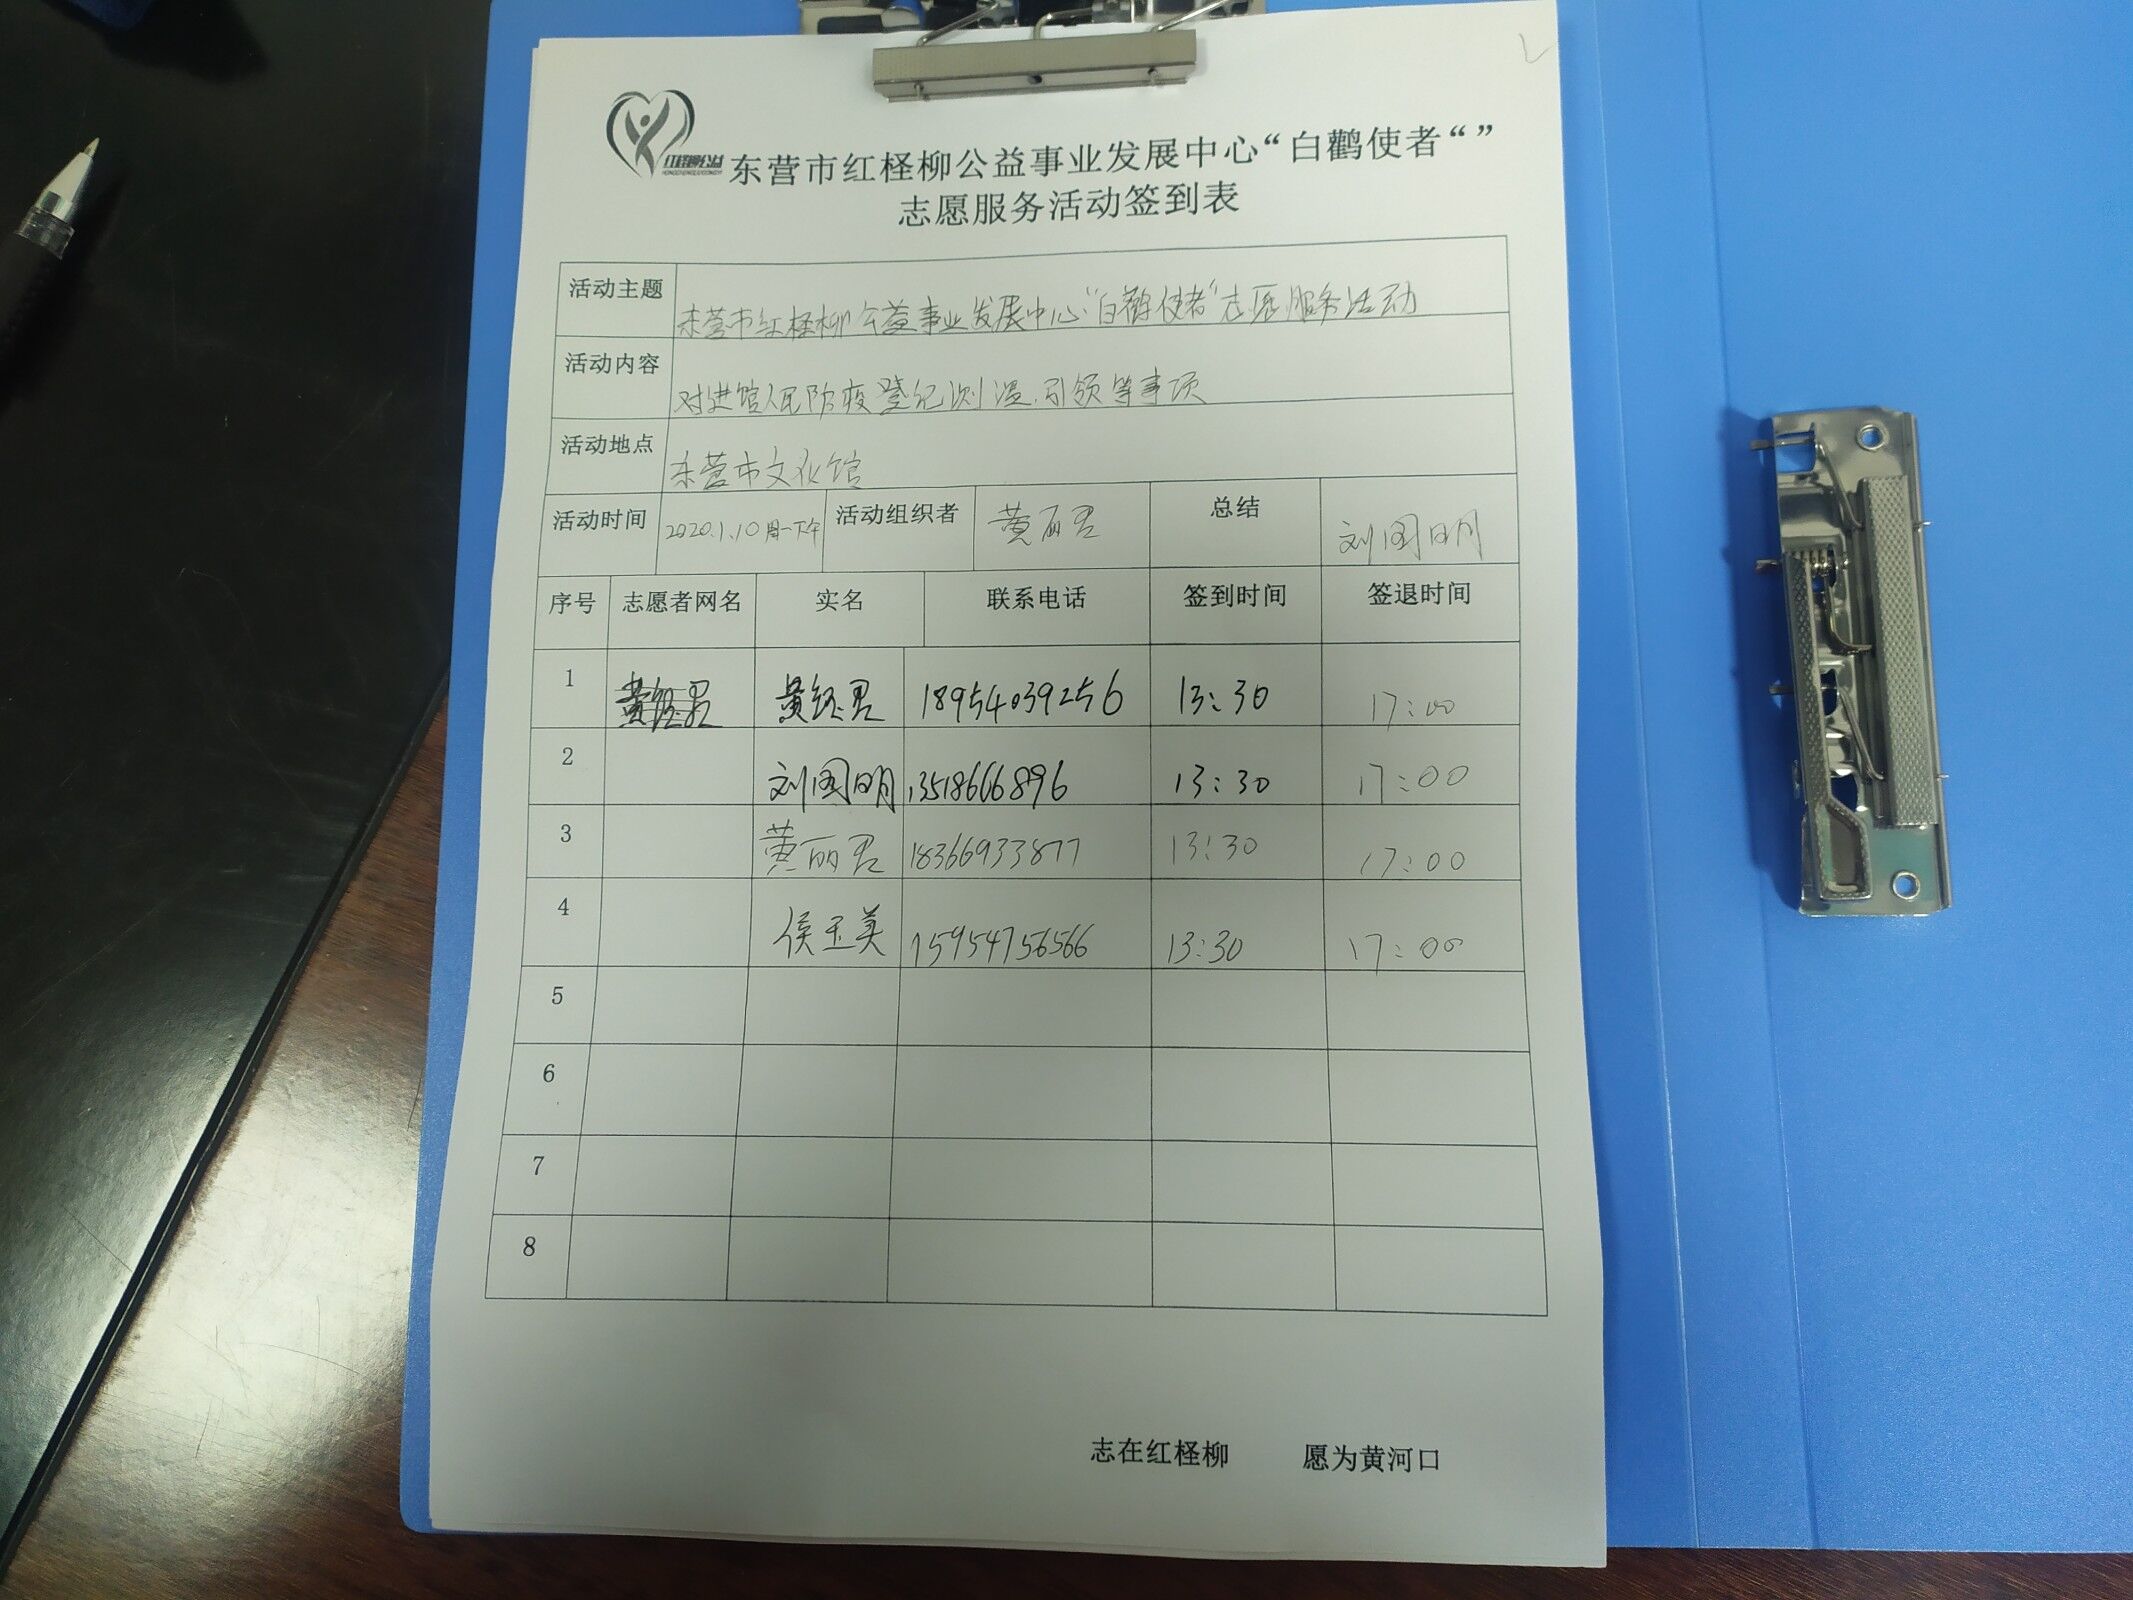 红柽柳公益
东营市红柽柳公益事业发展中心“白鹳使者“”
志愿服务活动签到表
活动主题 东营市红柽柳公益事业发展中心“白鹳使者”志愿服务活动
活动内容 对进馆人民防疫登记测温.引领等事项
活动地点 东营市文化馆
活动时间 2020.1.10周一下午 活动组织者 黄丽君 总结 刘国明
序号 志愿者网名 实名 联系电话 签到时间 签退时间
1 18954039256 13:30 17:00
2 刘国明 13518666896 13:30 17:00
3 黄丽君 18366933877 13:30 17:00
4 侯玉美 15954756566 13:30 17:00
5
6
7
8
志在红柽柳 愿为黄河口